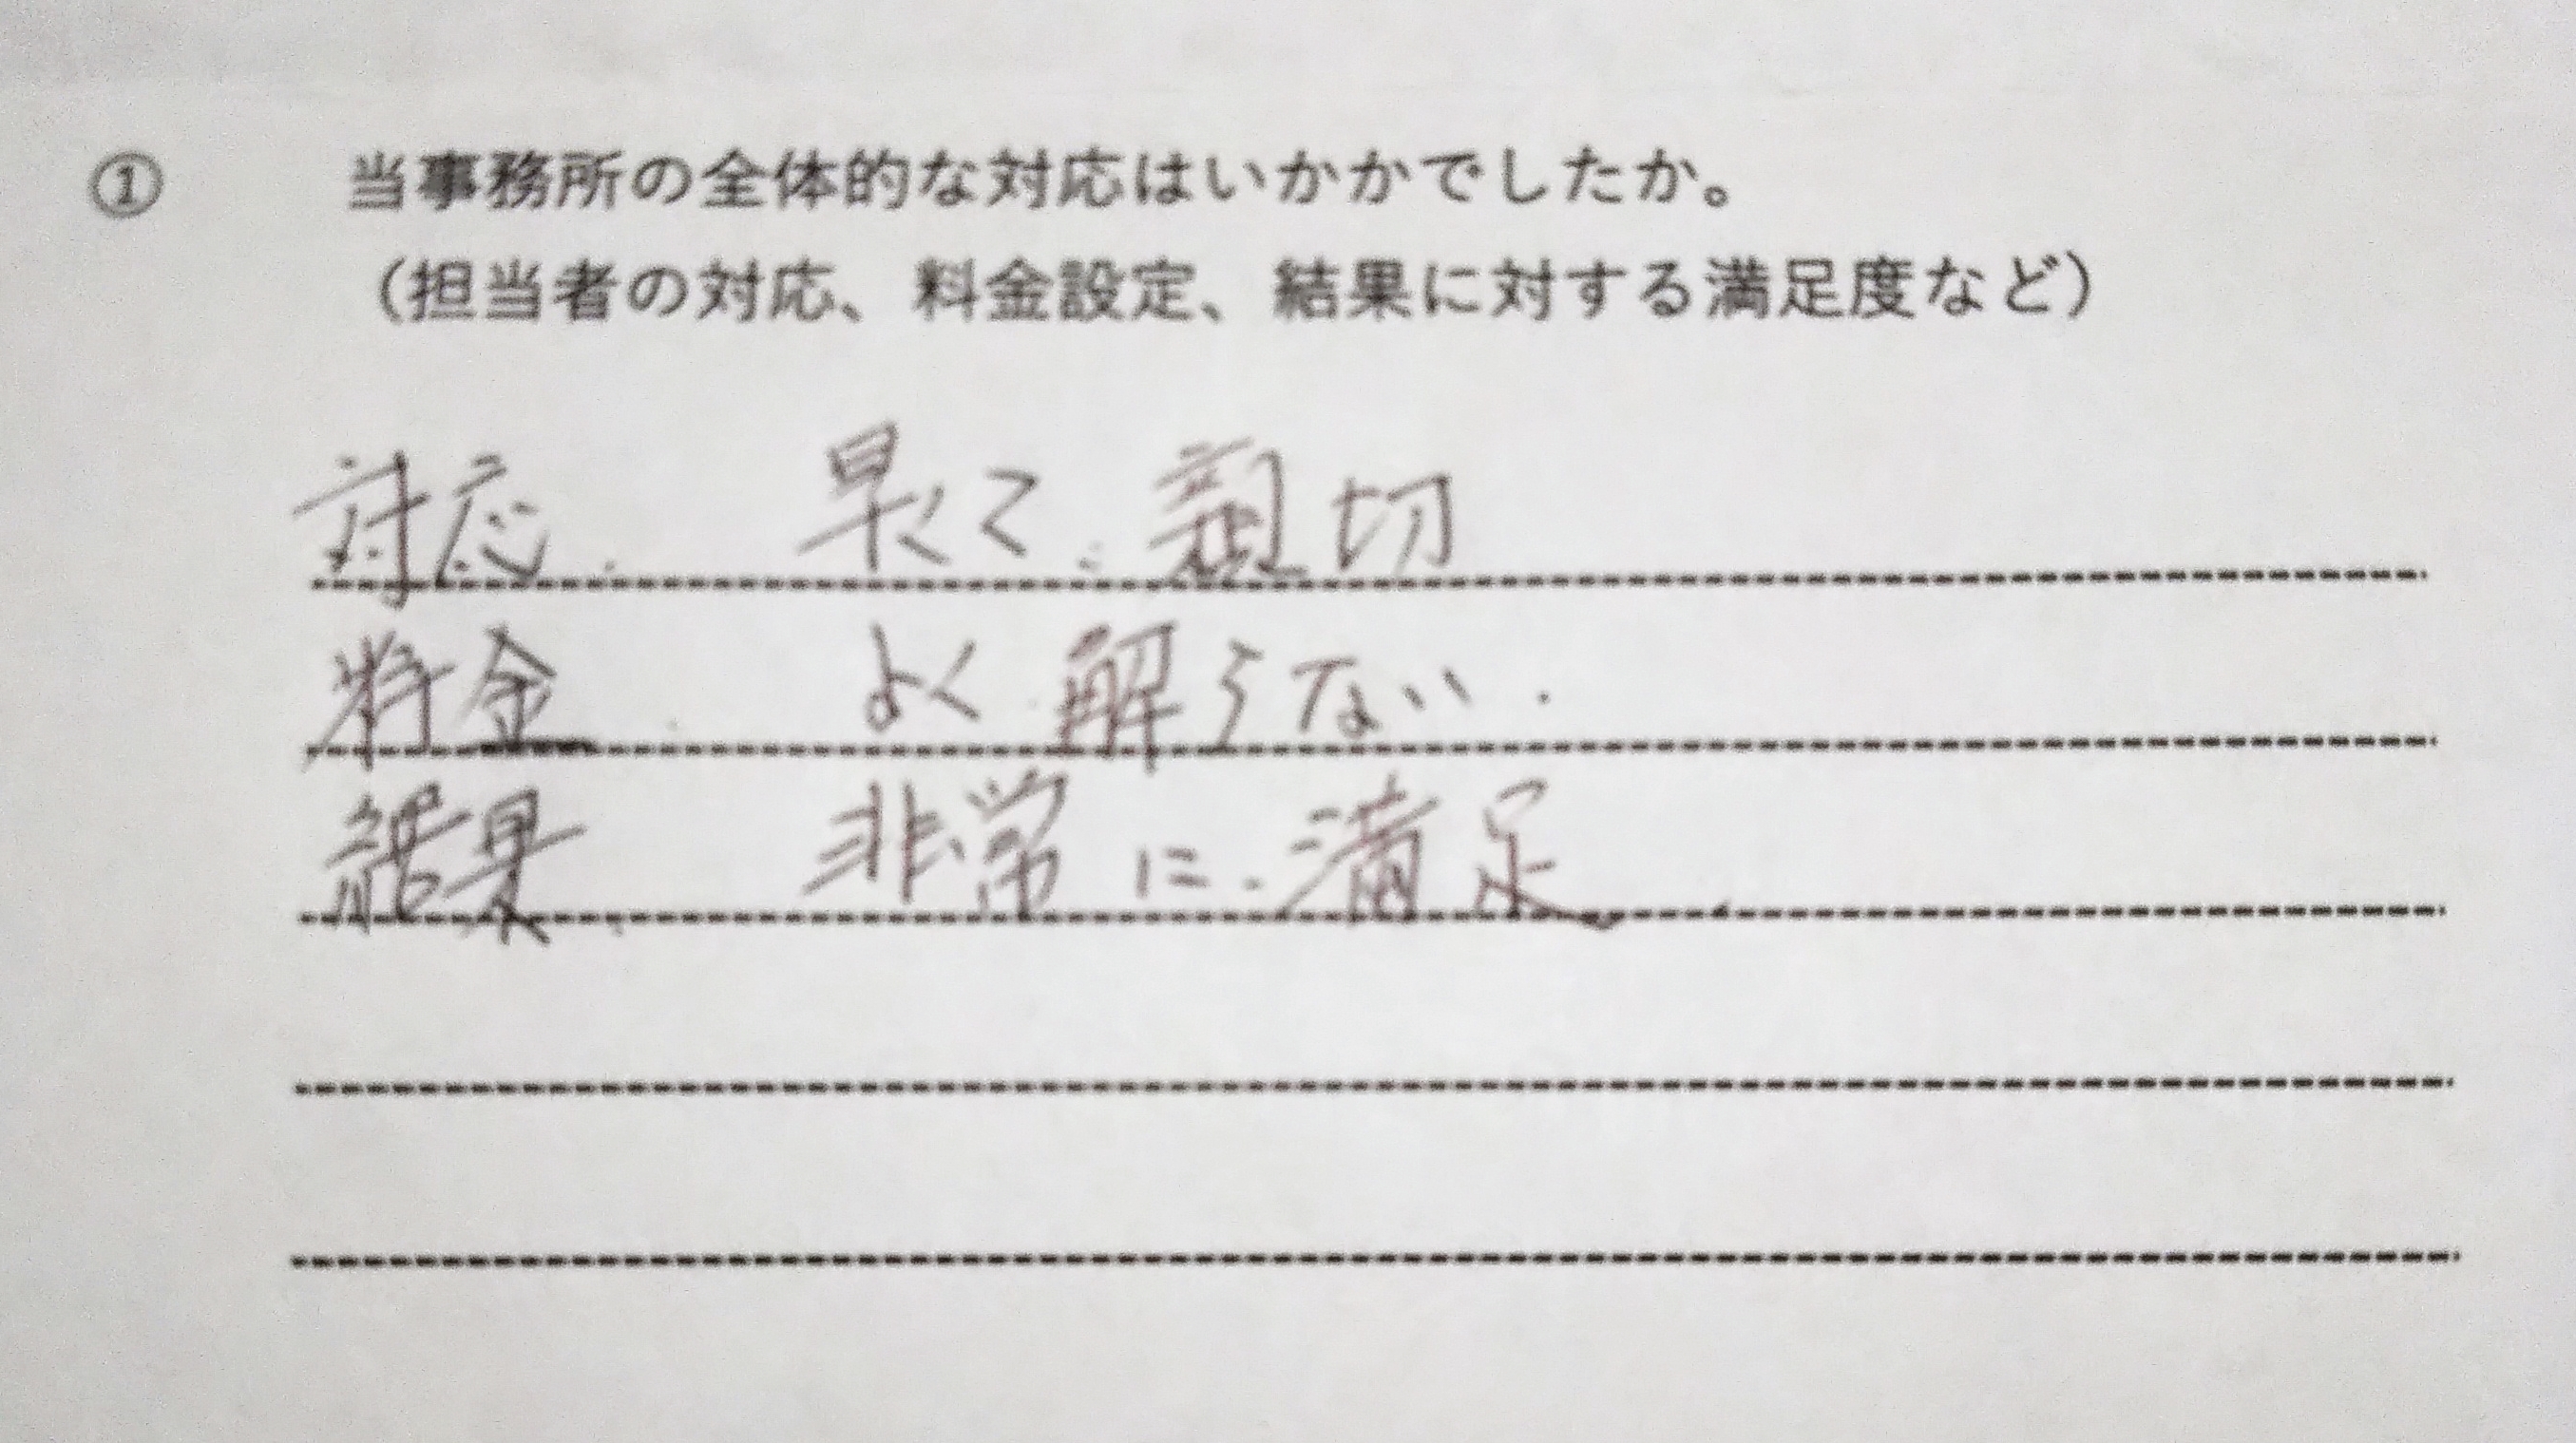 ① 当事務所の全体的な対応はいかかでしたか。
（担当者の対応、料金設定、結果に対する満足度など）
対応、 早くて、親切
料金、 よく解らない.
結果、 非常に、満足、